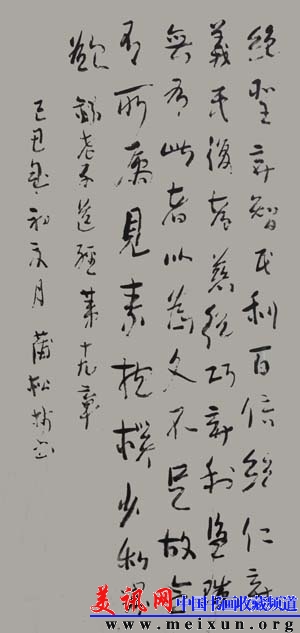 絕聖弃智民利百倍絕仁弃
義民復孝慈絕巧弃利盜賊
無有此者以為文不足故令
有所屬見素抱樸少私寡
欲 錄老子道經第十九章
己丑年初夏月 蒲松
美讯网 中国书画收藏频道
www.meixun.org